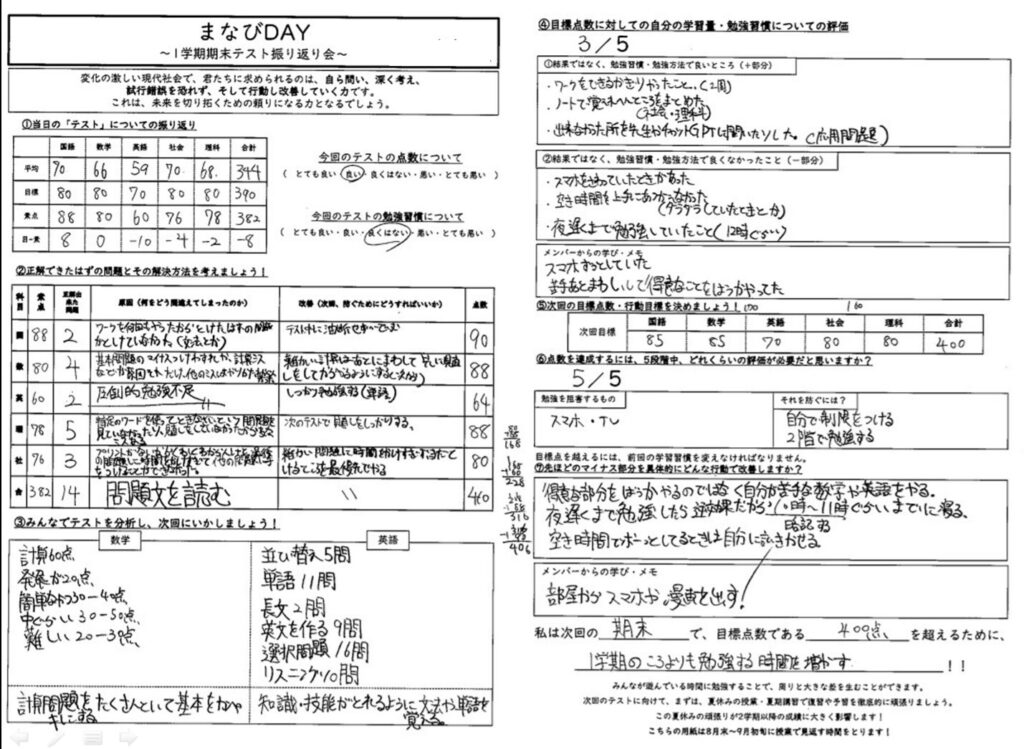 まなびDAY
～1学期期末テスト振り返り会～
変化の激しい現代社会で、君たちに求められるのは、自ら問い、深く考え、
試行錯誤を恐れず、そして行動し改善していく力です。
これは、未来を切り拓くための頼りになる力となるでしょう。
①当日の「テスト」についての振り返り
国語 数学 英語 社会 理科 合計
平均 70 66 59 70 68 344
目標 80 80 70 80 80 390
素点 88 80 60 76 78 382
目-素 8 0 -10 -4 -2 -8
今回のテストの点数について
（ とても良い・良い・良くはない・悪い・とても悪い ）
今回のテストの勉強習慣について
（ とても良い・良い・良くはない・悪い・とても悪い ）
②正解できたはずの問題とその解決方法を考えましょう！
科目 素点 正解出来た問題 原因（何をどう間違えてしまったのか） 改善（次回、防ぐためにどうすればいいか） 点数
国 88 2 90
数 80 4 88
英 60 2 圧倒的勉強不足 しっかり勉強する（単語） 64
理 78 5 次のテストで見直しをしっかりする。 88
社 76 3 80
合 382 14 問題文を読む 〃
③みんなでテストを分析し、次回にいかしましょう！
数学
計算60点
発展が20点、
簡単 30－40点、
中ぐらい30－50点、
難しい20－30点、
計算問題をたくさん
英語
並び替え5問
単語11問
長文2問
英文を作る9問
選択問題16問
リスニング10問
知識・技能がとれるように文法や単語を
覚える。
④目標点数に対しての自分の学習量・勉強習慣についての評価
3／5
①結果ではなく、勉強習慣・勉強方法で良いところ（＋部分）
・ワークをできるかぎりやったこと。（2周）
・ノートで覚えるべきところをまとめた
（社会・理科）
・出来なかった所を先生かチャットGPTに聞いたりした。（応用問題）
②結果ではなく、勉強習慣・勉強方法で良くなかったこと（－部分）
・スマホをさわっていたときがあった
・空き時間を上手につかえなかった
（ダラダラしていたときとか）
・夜遅くまで勉強していたこと（12時ぐらい）
メンバーからの学び・メモ
スマホずっとしていた
得意なことをばっかやってた
⑤次回の目標点数・行動目標を決めましょう！
国語 数学 英語 社会 理科 合計
次回目標 85 85 70 80 80 400
⑥点数を達成するには、5段階中、どれくらいの評価が必要だと思いますか？
5／5
勉強を阻害するもの
スマホ・テレ
それを防ぐには？
自分で制限をつける
2階で勉強する
目標点を超えるには、前回の学習習慣を変えなければなりません。
⑦先ほどのマイナス部分を具体的にどんな行動で改善しますか？
得意な部分をばっかやるのではなく自分が苦手な数学や英語をやる。
夜遅くまで勉強したら逆効果だから10時～11時ぐらいまでに寝る。
暗記する
空き時間でボーっとしてるときは自分に言いきかせる
メンバーからの学び・メモ
部屋からスマホや漫画を出す！
私は次回の 期末 で、目標点数である 400点 を超えるために、
1学期のころよりも勉強する時間を増やす ！！
みんなが遊んでいる時間に勉強することで、周りと大きな差を生むことができます。
次回のテストに向けて、まずは、夏休みの授業・夏期講習で復習や予習を徹底的に頑張りましょう。
この夏休みの頑張りが2学期以降の成績に大きく影響します！
こちらの用紙は8月末～9月初旬に授業で見返す時間をとります！